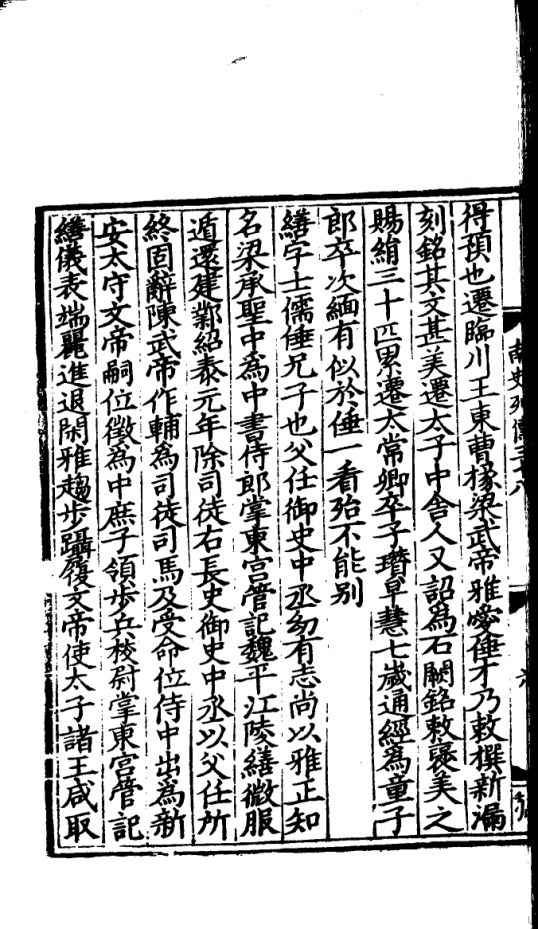 南史列傳三十八
六
得預也遷臨川王東曹掾梁武帝雅愛倕才乃敕撰新漏
刻銘其文甚美遷太子中舍人又詔為石闕銘敕襃美之
賜絹三十匹累遷太常卿卒子瓚早慧七歲通經為童子
郎卒次緬有似於倕一看殆不能别
繕字士儒倕兄子也父任御史中丞幼有志尚以雅正知
名梁承聖中為中書侍郎掌東宫管記魏平江陵繕微服
遁還建鄴紹泰元年除司徒右長史御史中丞以父任所
終固辭陳武帝作輔為司徒司馬及受命位侍中出為新
安太守文帝嗣位徵為中庶子領步兵校尉掌東宫管記
繕儀表端麗進退閑雅趨步躡履文帝使太子諸王咸取